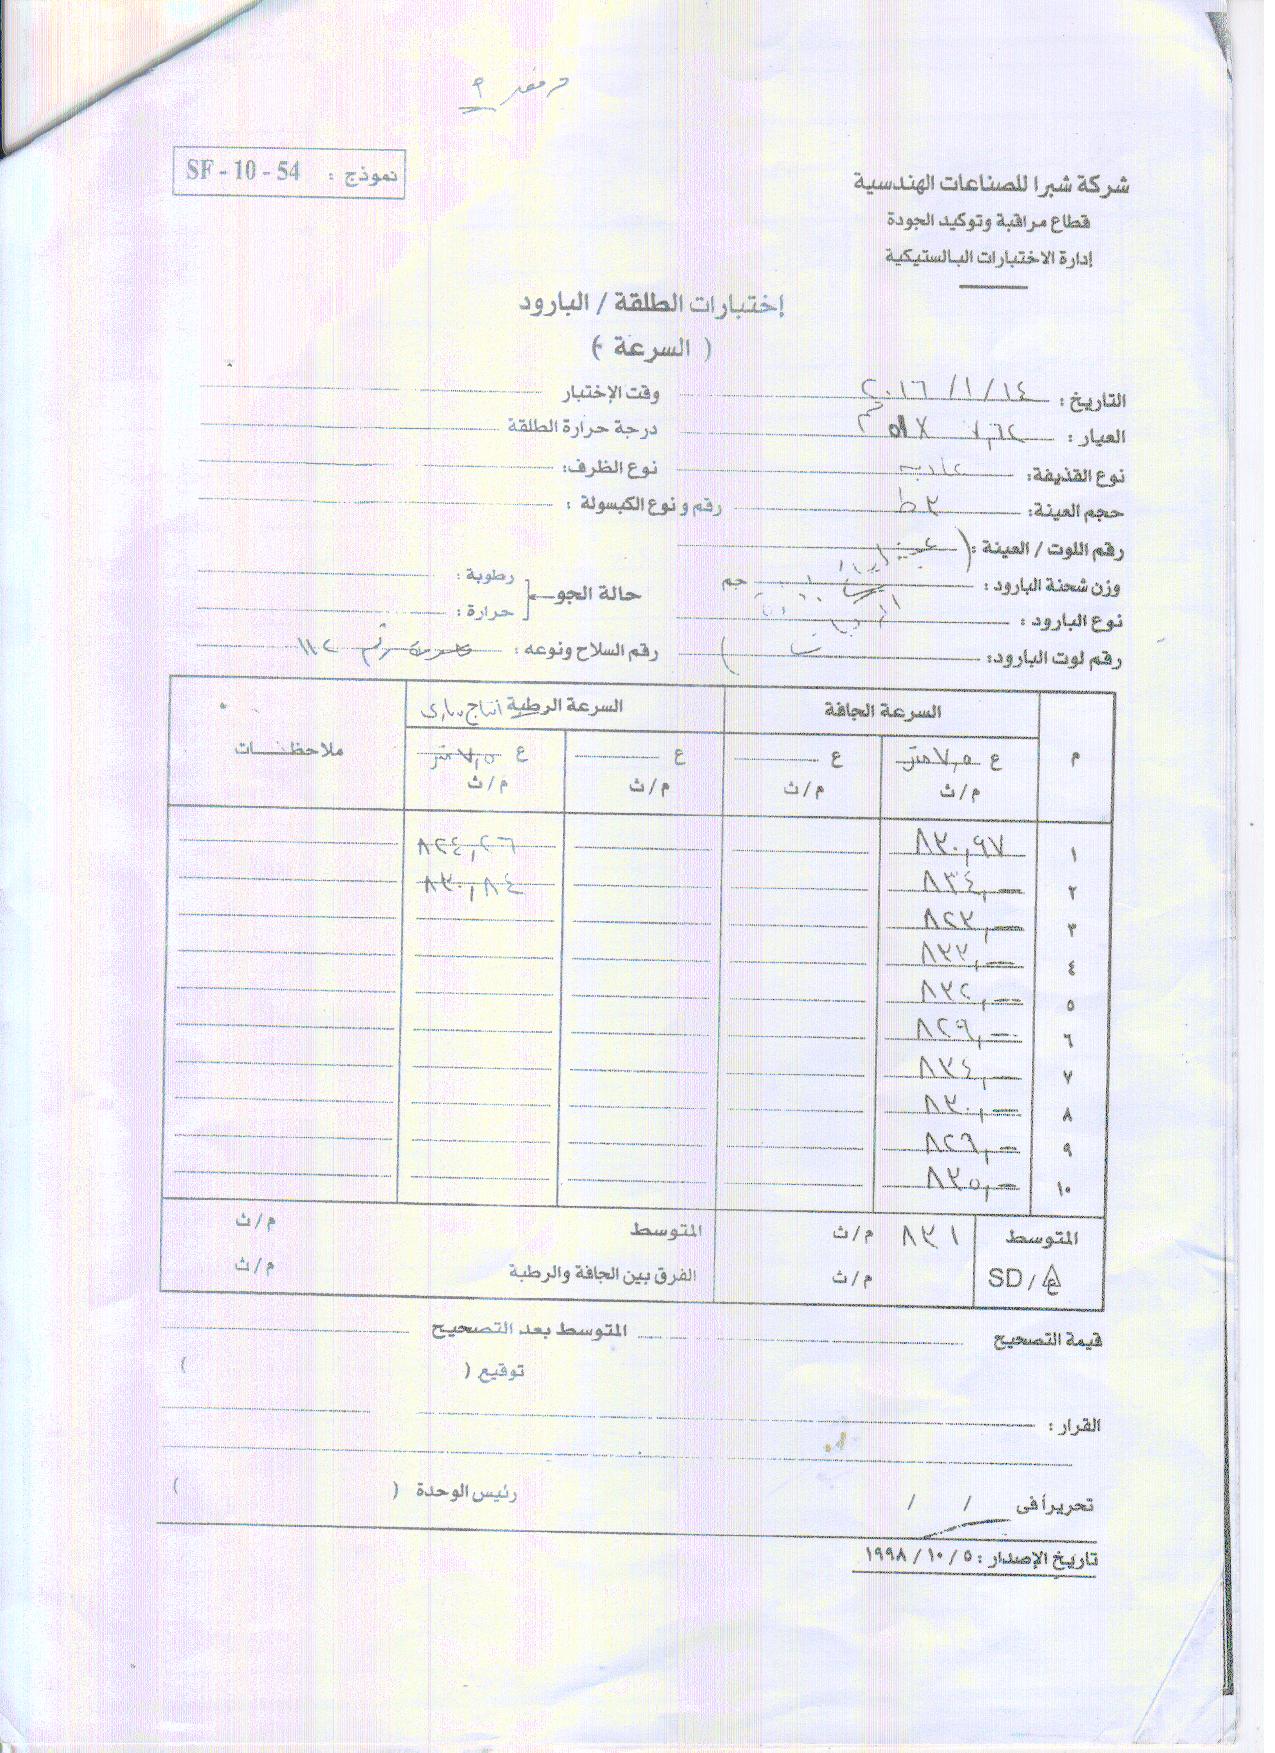 ٩
نموذج : SF - 10 - 54
شركة شبرا للصناعات الهندسية
قطاع مراقبة وتوكيد الجودة
إدارة الاختبارات البالستيكية
إختبارات الطلقة / البارود
( السرعة )
التاريخ : ٢٠١٦/١/١٤ وقت الإختبار
العيار : ٧,٦٢ X ٥١ م درجة حرارة الطلقة
نوع القذيفة: عادية نوع الظرف:
حجم العينة: ٣ ط رقم و نوع الكبسولة :
رقم اللوت / العينة : ( عينة
وزن شحنة البارود : جم حالة الجو رطوبة :
نوع البارود : حرارة :
رقم لوت البارود: ) رقم السلاح ونوعه : رقم ١١٢
م السرعة الجافة السرعة الرطبة انتاج ملاحظات
ع ٧,٥ متر م/ث ع م/ث ع م/ث ع ٧,٥ متر م/ث
١ ٨٣٠,٩٧ ٨٢٤,٢٦
٢ ٨٣٤,— ٨٣٠,٨٤
٣ ٨٢٣,—
٤ ٨٣٣,—
٥ ٨٣٢,—
٦ ٨٢٩,—
٧ ٨٣٤,—
٨ ٨٣٠,—
٩ ٨٢٦,—
١٠ ٨٣٥,—
المتوسط ٨٣١ م/ث المتوسط م/ث
SD / ع م/ث الفرق بين الجافة والرطبة م/ث
قيمة التصحيح المتوسط بعد التصحيح
توقيع ( )
القرار :
تحريراً فى / / رئيس الوحدة ( )
تاريخ الإصدار : ٥ / ١٠ / ١٩٩٨